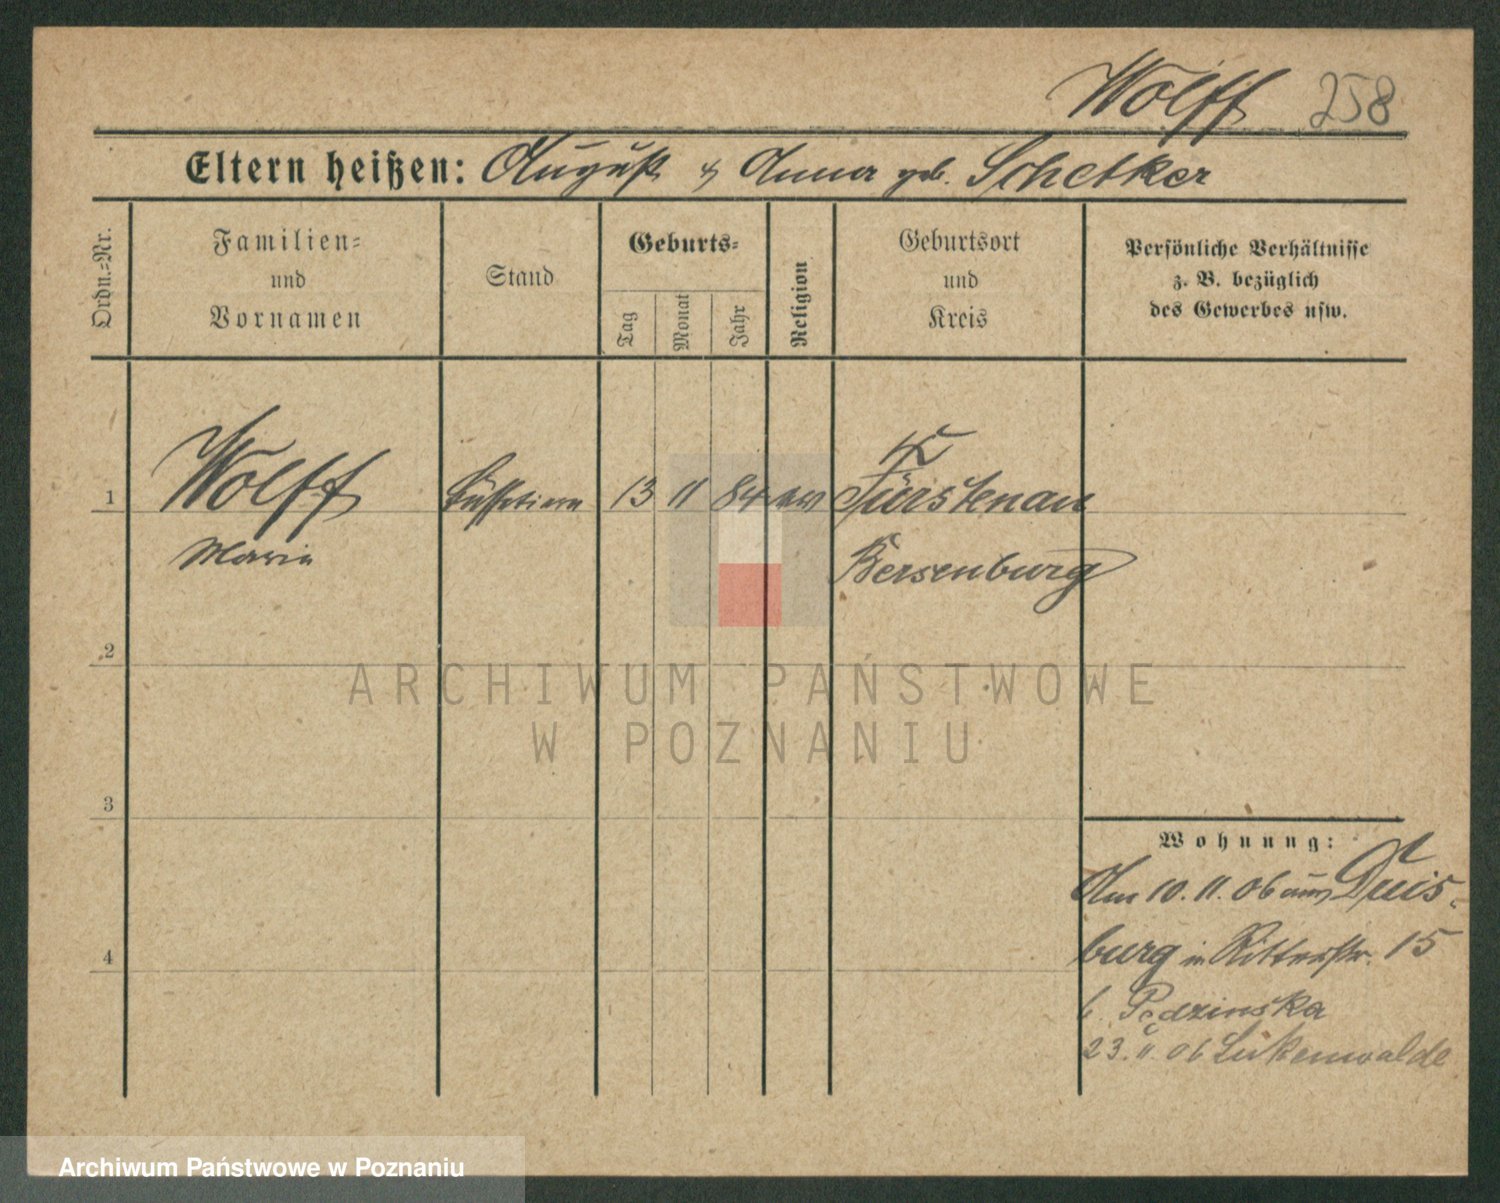 Wolff 258
Eltern heißen: August & Anna geb. Schetker
Ordn.-Nr.
Familien-
und
Vornamen
Stand
Geburts-
Tag
Monat
Jahr
Religion
Geburtsort
und
Kreis
Persönliche Verhältnisse
z. B. bezüglich
des Gewerbes usw.
1 Wolff 13 11 84 Fürstenau
Maria Bersenburg
2
ARCHIWUM PAŃSTWOWE
W POZNANIU
3
Wohnung:
Am 10. 11. 06 aus Duis-
burg in Ritterstr. 15
b. Pędzinska
23. 11. 06 Lukenwalde
4
Archiwum Państwowe w Poznaniu